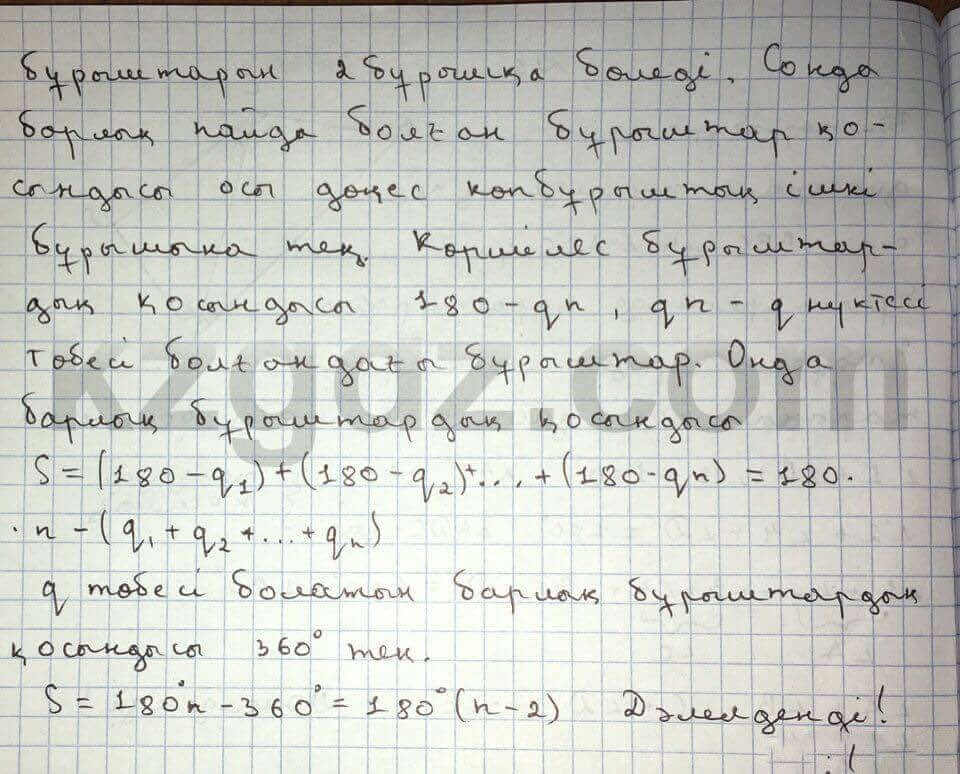 бұрыштарын 2 бұрышқа бөледі. Сонда
барлық пайда болған бұрыштар қо-
сындысы осы дөңес көпбұрыштың ішкі
бұрышына тең. Көршілес бұрыштар-
дың қосындысы 180-qn, qn - q нүктесі
төбесі болғандағы бұрыштар. Онда
барлық бұрыштардың қосындысы
S = (180-q₁)+(180-q₂)+...+(180-qn) = 180·
·n-(q₁+q₂+...+qₙ)
q төбесі болатын барлық бұрыштардың
қосындысы 360° тең.
S = 180°n - 360° = 180°(n-2) Дәлелденді!